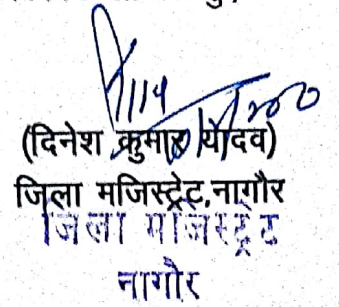 (दिनेश कुमार यादव)
जिला मजिस्ट्रेट,नागौर
जिला मजिस्ट्रेट
नागौर